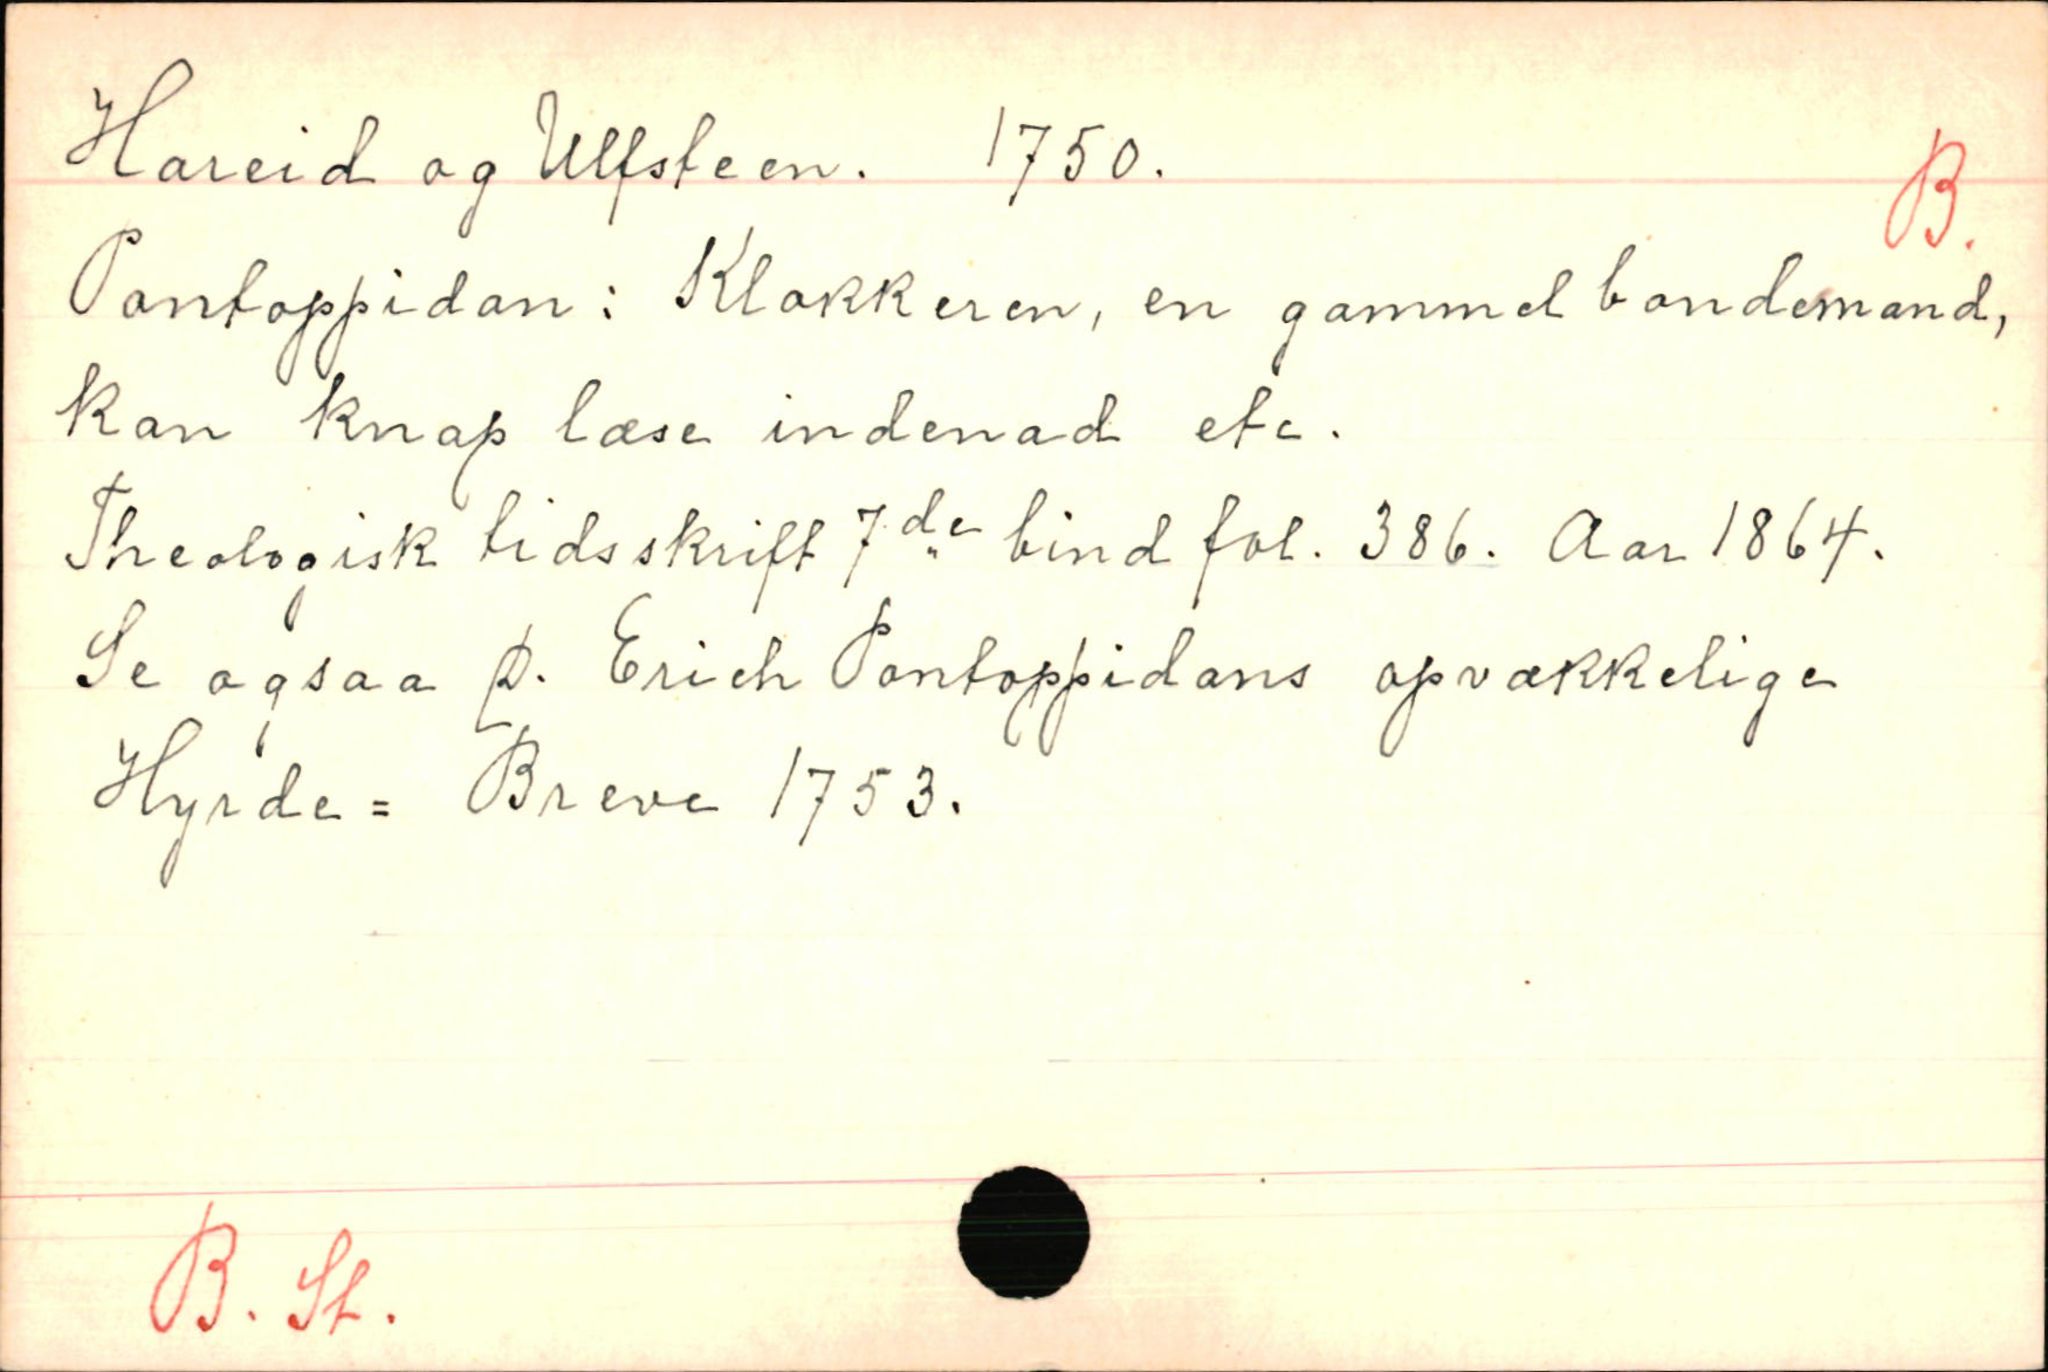 Hareid og Ulfsteen. 1750.
B.
Pontoppidan: Klokkeren, en gammel bondemand,
kan knap læse indenad etc.
Theologisk tidsskrift 7de bind fol. 386. Aar 1864.
Se ogsaa D. Erich Pontoppidans opvækkelige
Hyrde= Breve 1753.
B. St.